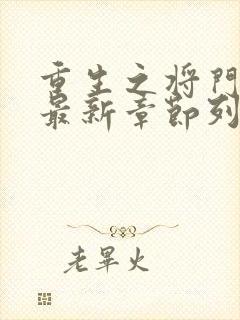 重生之将门
最新章节列
老畢火